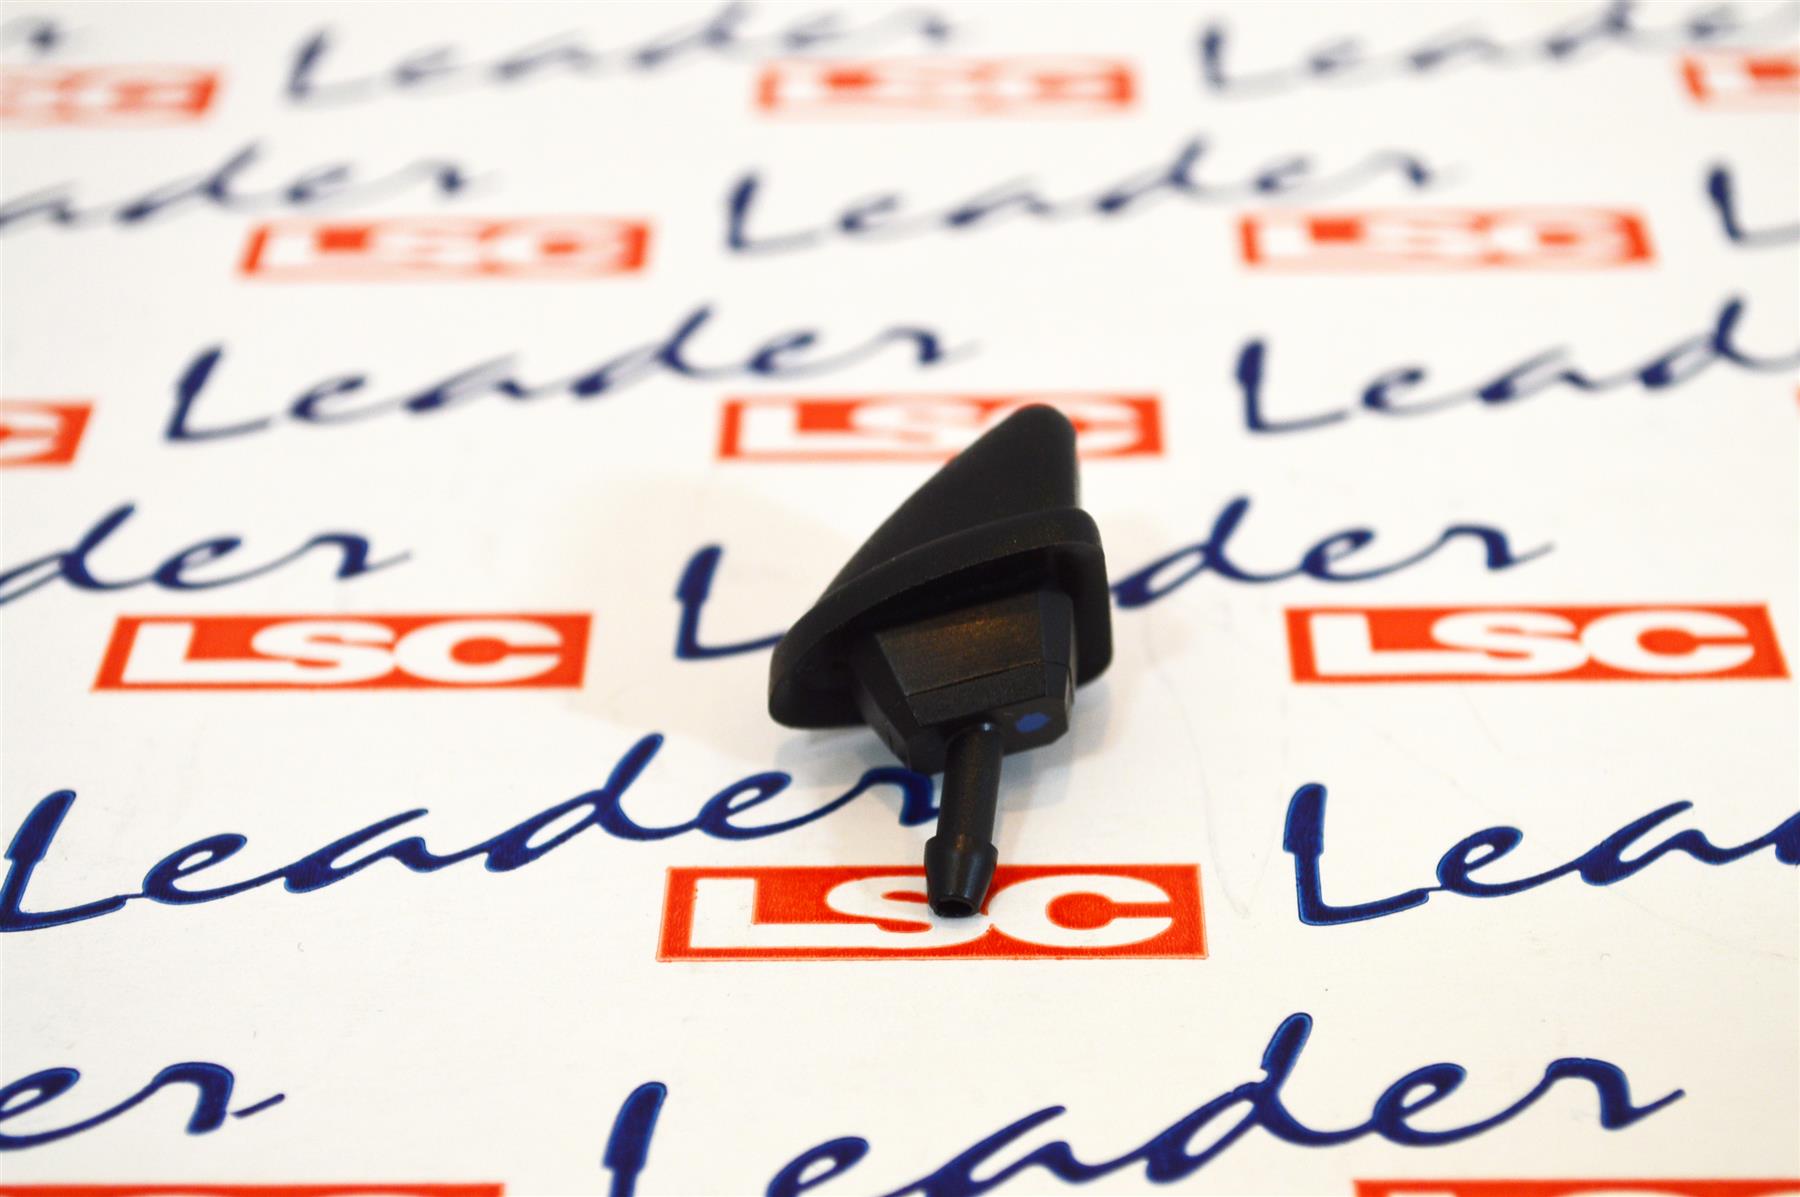 Leader
LSC LSC LSC
Leader Leader
LSC LSC
Leader Leader
LSC
Leader Leader
LSC LSC
Leader Leader
LSC
Leader